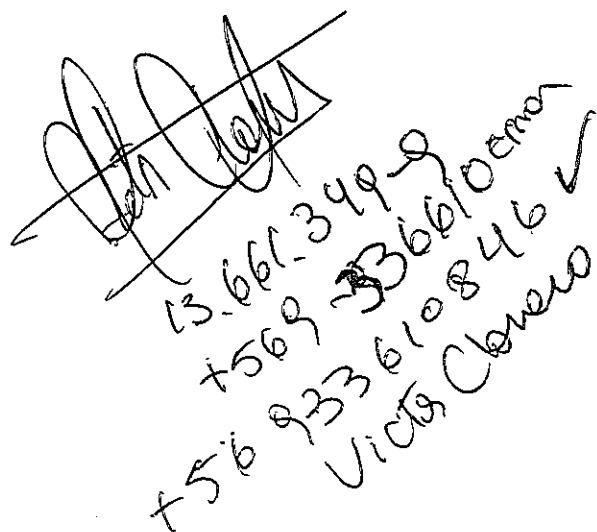 13.661.349-9
+569 336610 error
+56 933610846 ✓
Victor Clavero